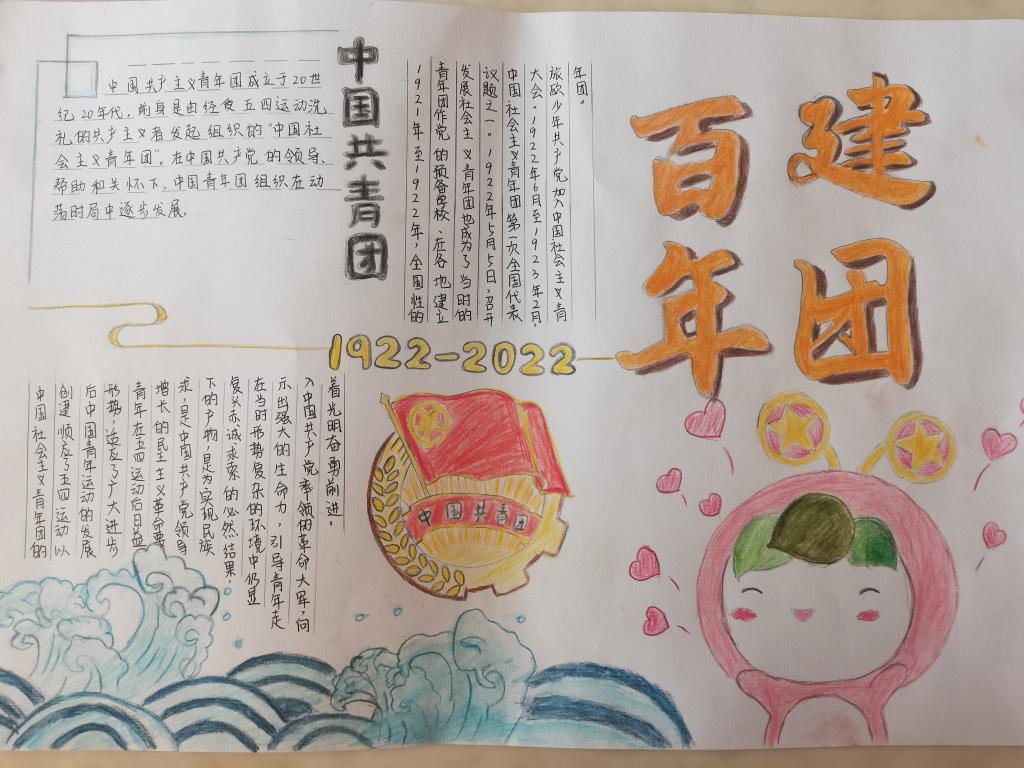 建团
百年
中国共产主义青年团成立于20世
纪20年代，前身是由经受五四运动洗
礼的共产主义者发起组织的“中国社
会主义青年团”。在中国共产党的领导、
帮助和关怀下，中国青年团组织在动
荡时局中逐步发展。
中国共青团
1921年至1922年，全国性的
青年团作党的预备学校、在各地建立
发展社会主义青年团也成为了当时的
议题之一。1922年5月5日，召开
中国社会主义青年团第一次全国代表
大会。1922年6月至1923年2月，
旅欧少年共产党加入中国社会主义青
年团。
1922-2022
中国社会主义青年团的
创建顺应了五四运动以
后中国青年运动的发展
形势，适应了广大进步
青年在五四运动后日益
增长的民主主义革命要
求，是中国共产党领导
下的产物，是为实现民族
复兴赤诚求索的必然结果，
在当时形势复杂的环境中仍显
示出强大的生命力，引导青年走
入中国共产党率领的革命大军，向
着光明奋勇前进。
中国共青团